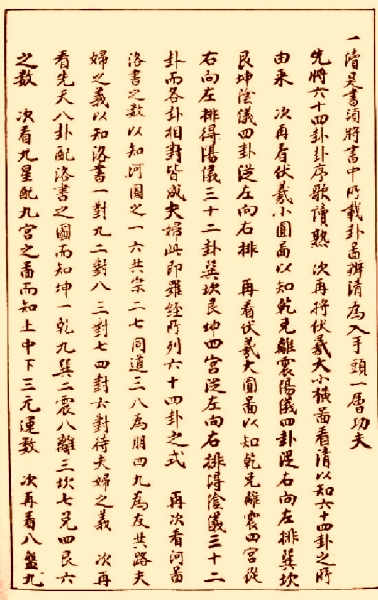 一讀是書須將書中所載卦啚辨清為入手頭一層功夫
先將六十四卦卦序歌讀熟　次再將伏羲大小橫啚看清以知六十四卦之所
由來　次再看伏羲小圓啚以知乾兌離震陽儀四卦從右向左排巽坎
艮坤陰儀四卦從左向右排　再看伏羲大圓啚以知乾兌離震四宮從
右向左排得陽儀三十二卦巽坎艮坤四宮從左向右排得陰儀三十二
卦而各卦相對皆成夫婦此即雖經所列六十四卦之式　再次看河啚
洛書之数以知河圖之一六共宗二七同道三八為朋四九為友共路夫
婦之義以知洛書一對九二對八三對七四對六對待夫婦之義　次再
看先天八卦配洛書之圖而知坤一乾九巽二震八離三坎七兌四艮六
之数　次看九星配九宮之啚而知上中下三元運数　次再看八盤九